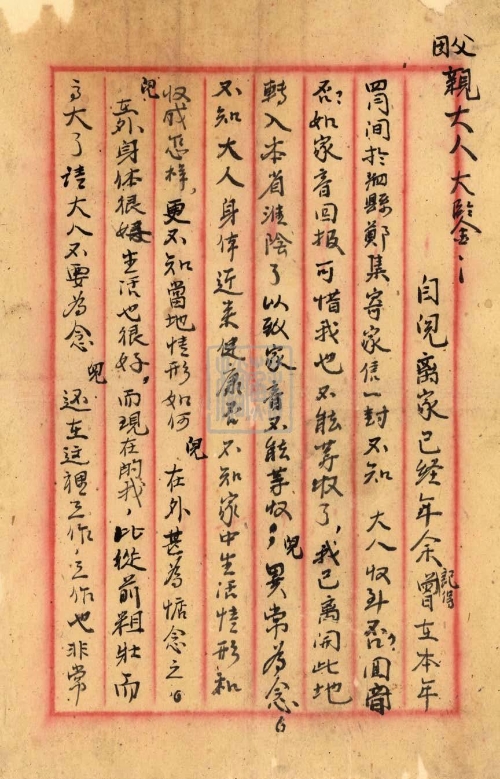 父
親大人大鑒：
自兒离家已经年余記得曾在本年
四月间於泗縣鄭集寄家信一封不知 大人收到否？回音
否？如家音回报可惜我也不能等收了，我已离開此地
轉入本省淮陰了以致家音不能等收，兒異常為念。
不知大人身体近來健康否不知家中生活情形和
收成怎样，更不知當地情形如何 兒在外甚為惦念之。
兒在外身体很好生活也很好，而現在的我，比從前粗壯而
高大了請大人不要為念 兒还在这裡工作，工作也非常